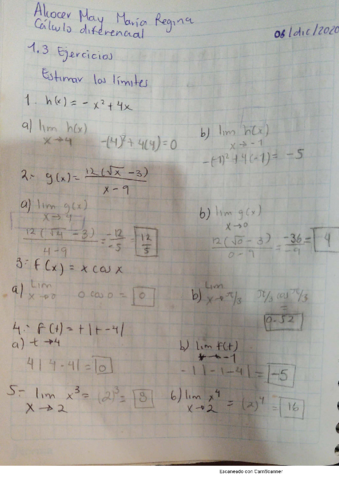 Alcocer May Maria Regina
Cálculo diferencial 08/dic/2020
1.3 Ejercicios
Estimar los límites
1. h(x) = -x² + 4x
a) lim h(x)
x→4 -(4)² + 4(4) = 0
b) lim h(x)
x→-1
-(-1)² + 4(-1) = -5
2.- g(x) = 12(√x - 3)
x - 9
a) lim g(x)
x→4
12(√4 - 3) = -12 = 12
4 - 9 -5 5
b) lim g(x)
x→0
12(√0 - 3) = -36 = 4
0 - 9 -9
3.- f(x) = x cos x
a) Lim
x→0 0 cos 0 = 0
b) Lim
x→π/3 π/3 cos π/3
=
0.52
4.- f(t) = t|t-4|
a) t→4
4|4-4| = 0
b) lim f(t)
t→-1
-1|-1-4| = -5
5.- lim x³ = (2)³ = 8
x→2
b) lim x⁴ = (2)⁴ = 16
x→2
Escaneado con CamScanner